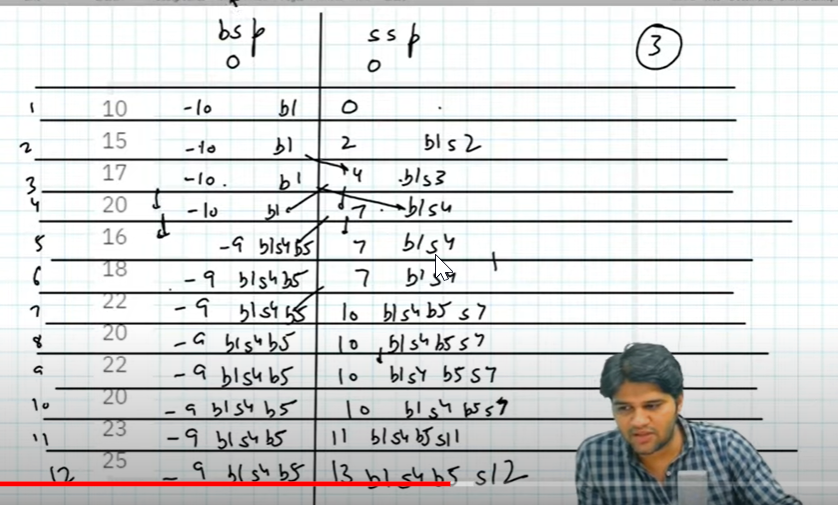 bsp ssp 3
0 0
1 10 -10 b1 0
2 15 -10 b1 2 b1s2
3 17 -10. b1 4 .b1s3
4 20 -10 b1 7. b1s4
5 16 -9 b1s4b5 7 b1s4
6 18 -9 b1s4b5 7 b1s4
7 22 -9 b1s4b5 10 b1s4b5s7
8 20 -9 b1s4b5 10 b1s4b5s7
9 22 -9 b1s4b5 10 b1s4 b5s7
10 20 -9 b1s4b5 10 b1s4 b5s7
11 23 -9 b1s4b5 11 b1s4b5s11
12 25 -9 b1s4b5 13 b1s4b5 s12